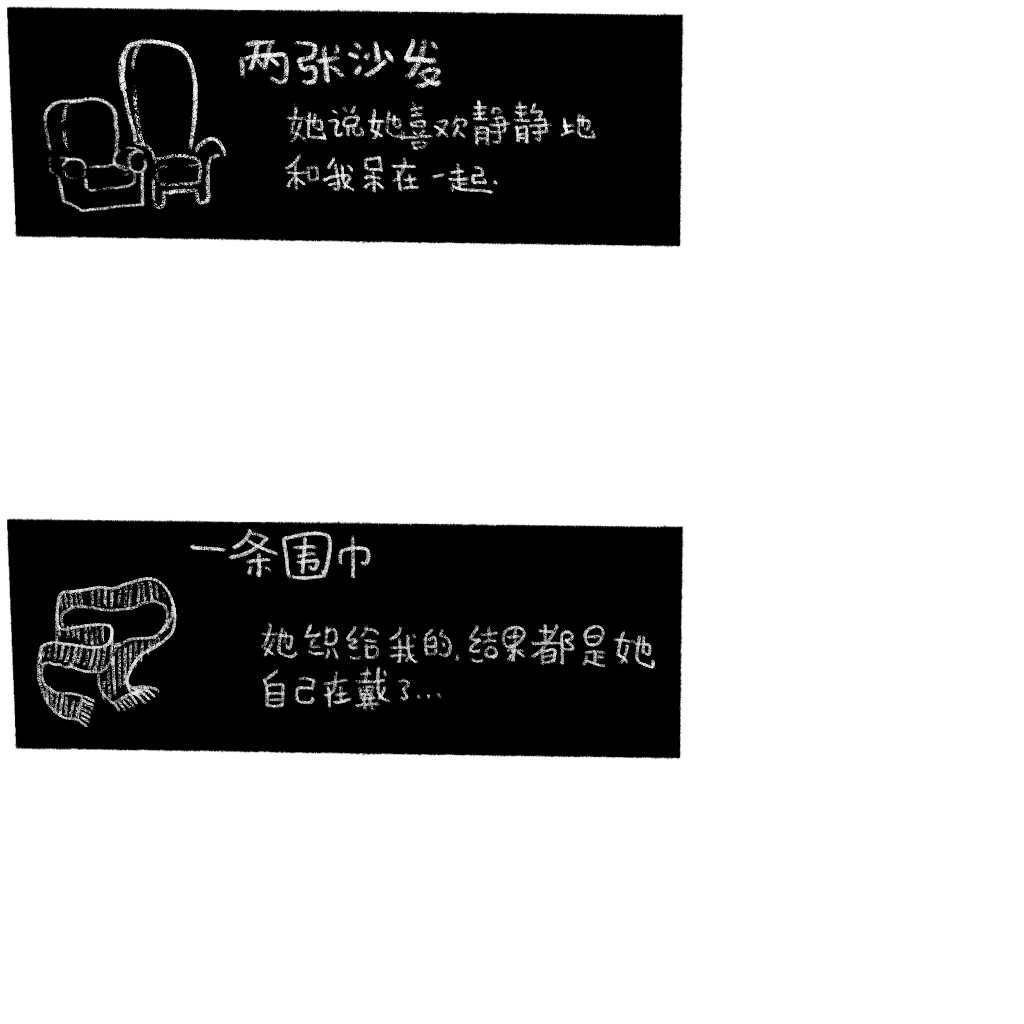 两张沙发
她说她喜欢静静地
和我呆在一起.
一条围巾
她织给我的,结果都是她
自己在戴了...